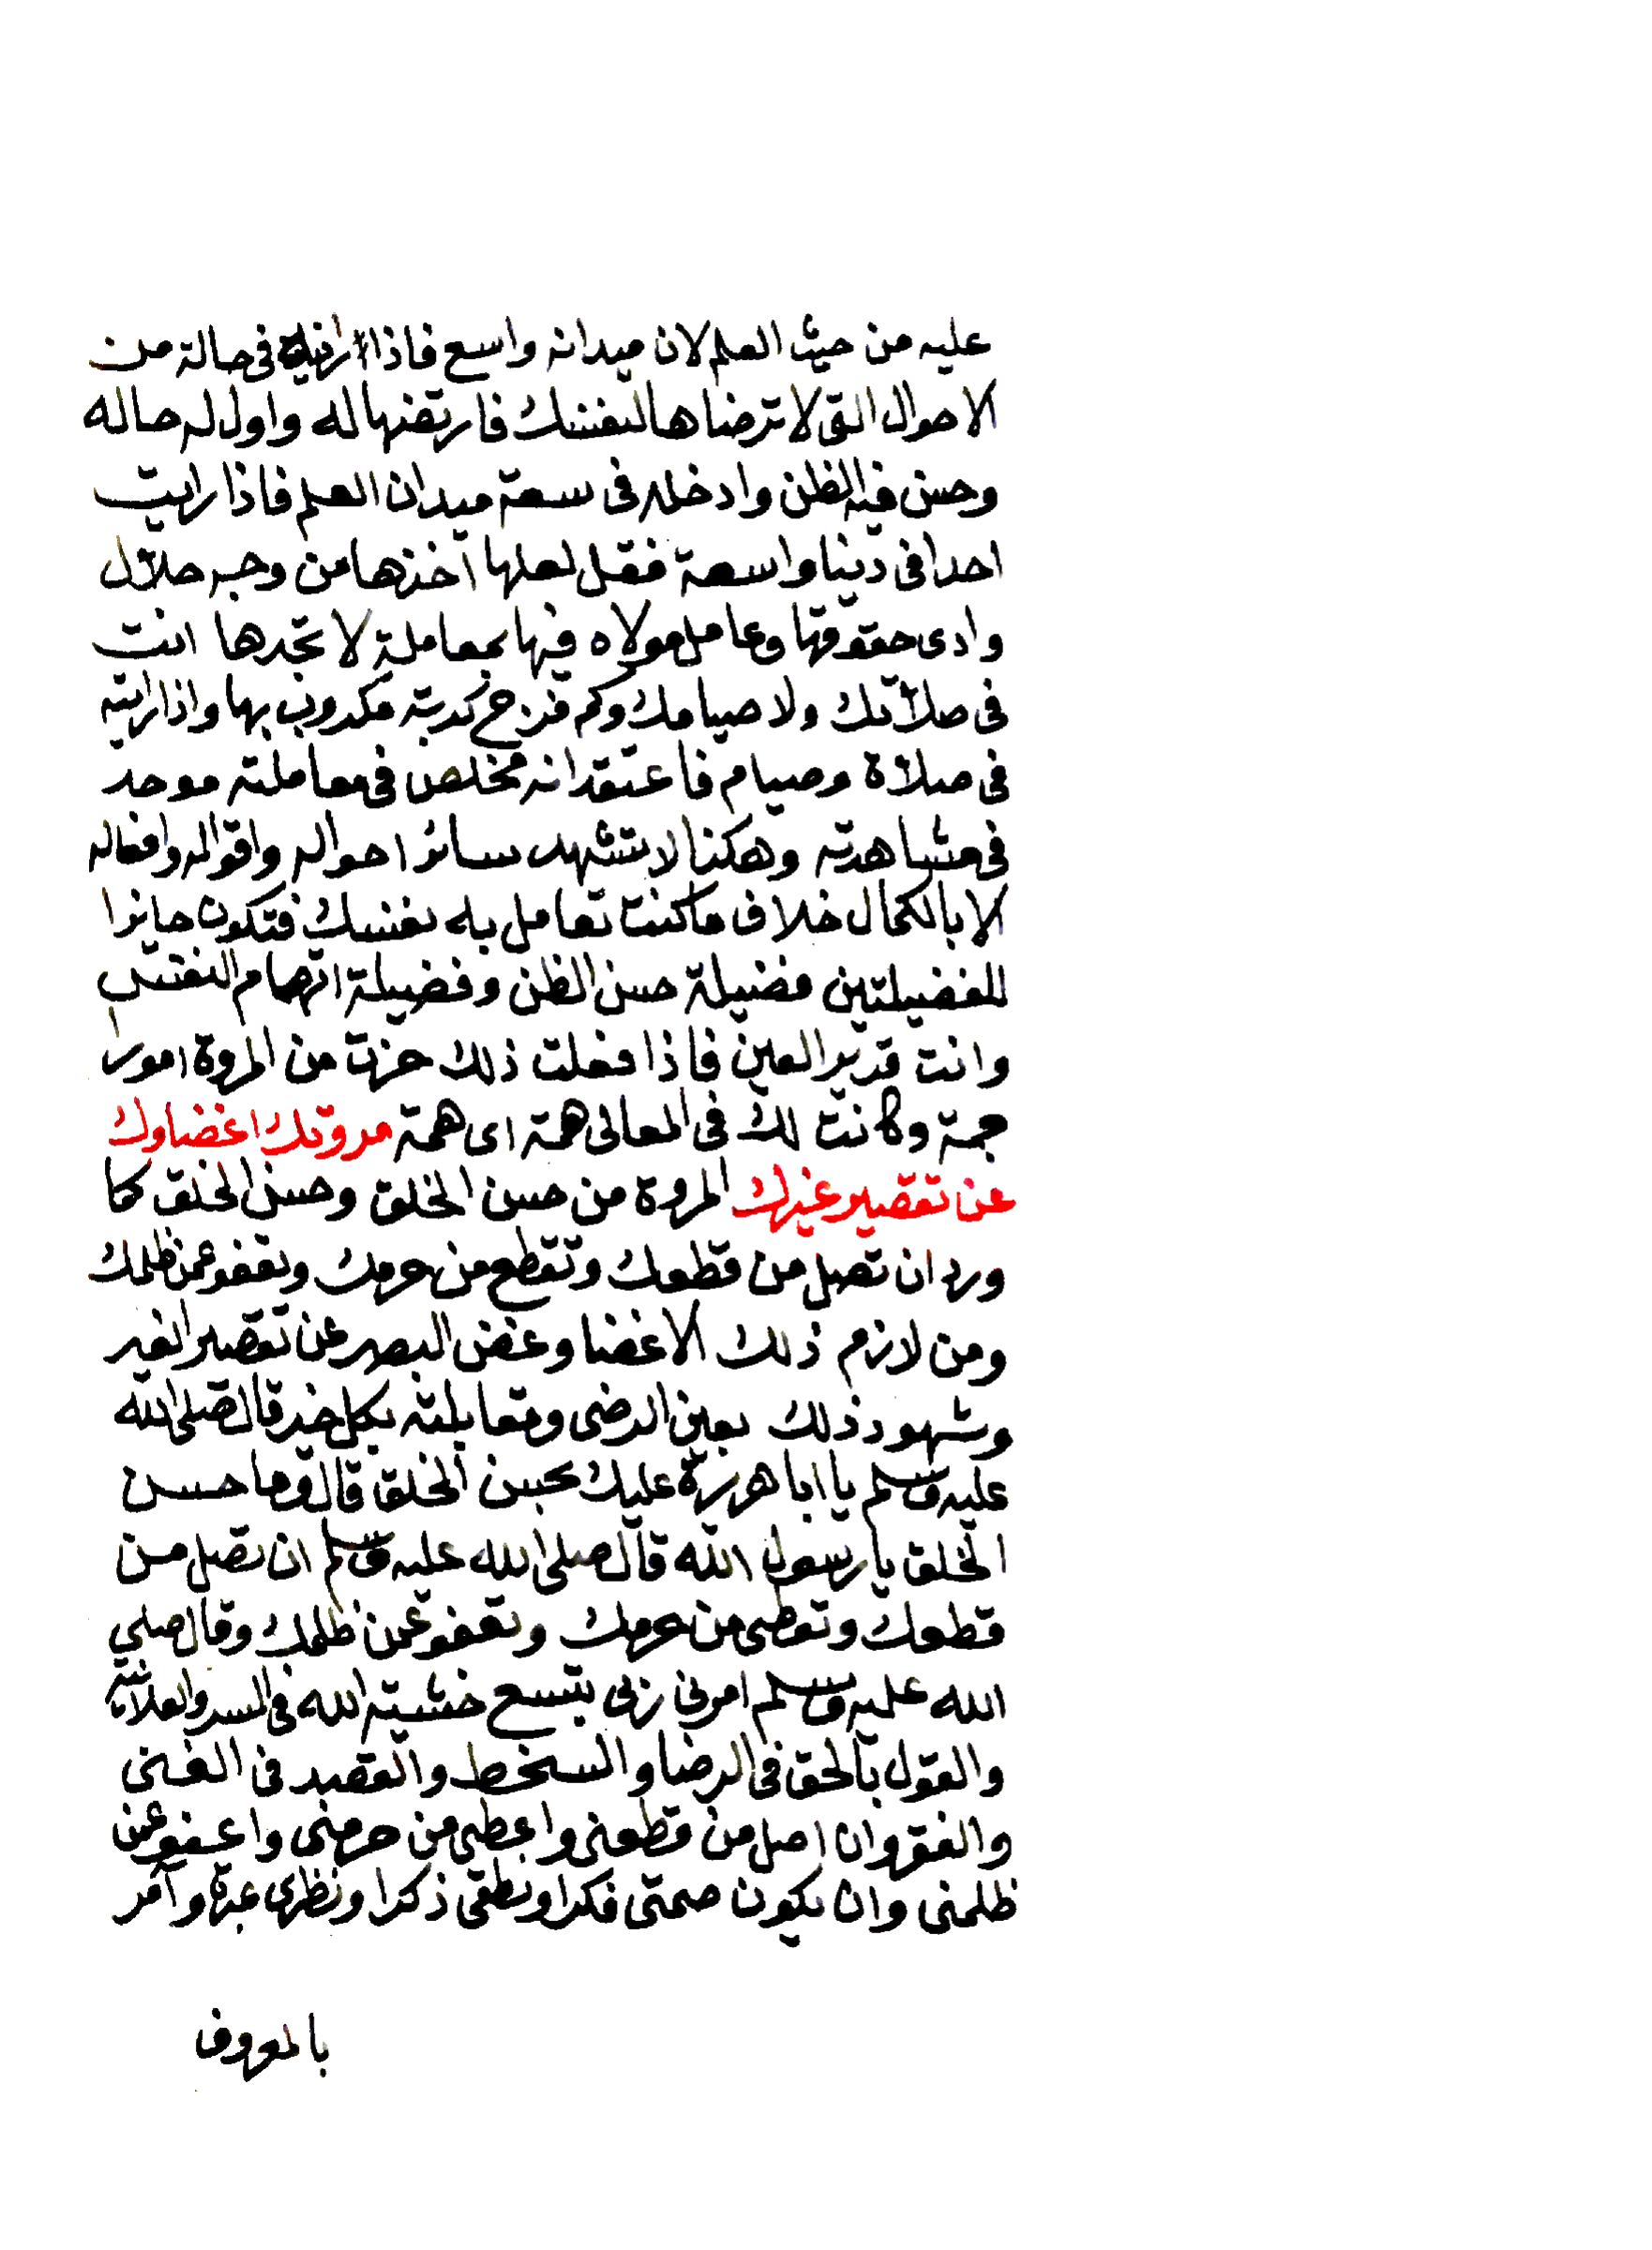 عليه من حيث العلم لان ميدانه واسع فاذا رايته في حالة من
الاحوال التي لا ترضاها لنفسك فارتضها له واول له حاله
وحسن فيه الظن وادخله في سعة ميدان العلم فاذا رايت
احدا في دنيا واسعة فقل لعلها اخذها من وجه حلال
وادى حقوقها وعامل مولاه فيها بمعاملة لا تجدها انت
في صلاتك ولا صيامك وكم فرج كربة مكروب بها واذا رايته
في صلاة وصيام فاعتقد انه مخلص في معاملته موحد
في مشاهدته وهكذا لا تشهد سائر احواله واقواله وافعاله
الا بالكمال خلاف ما كنت تعامل به نفسك فتكون حايزا
للفضيلتين فضيلة حسن الظن وفضيلة اتهام النفس
وانت قرير العين فاذا فعلت ذلك حزت من المروة امورا
جمة وكانت لك في المعالي همة اى همة مروتك اغضاوك
عن تقصير غيرك المروة من حسن الخلق وحسن الخلق كما
ورد ان تصل من قطعك وتقطع من حرمك وتعفو عمن ظلمك
ومن لازم ذلك الاغضا وغض البصر عن تقصير الغير
وشهود ذلك بعين الرضى ومقابلته بكل خير قال صلى الله
عليه وسلم يا ابا هريرة عليك بحسن الخلق قال وما حسن
الخلق يا رسول الله قال صلى الله عليه وسلم ان تصل من
قطعك وتعطى من حرمك وتعفو عمن ظلمك وقال صلى
الله عليه وسلم امرني ربى بتسع خشية الله في السر والعلانية
والقول بالحق في الرضا والسخط والقصد في الغنى
والفقر وان اصل من قطعنى واعطى من حرمنى واعفو عمن
ظلمنى وان يكون صمتى فكرا ونطقى ذكرا ونظرى عبرة وآمر
بالمعروف